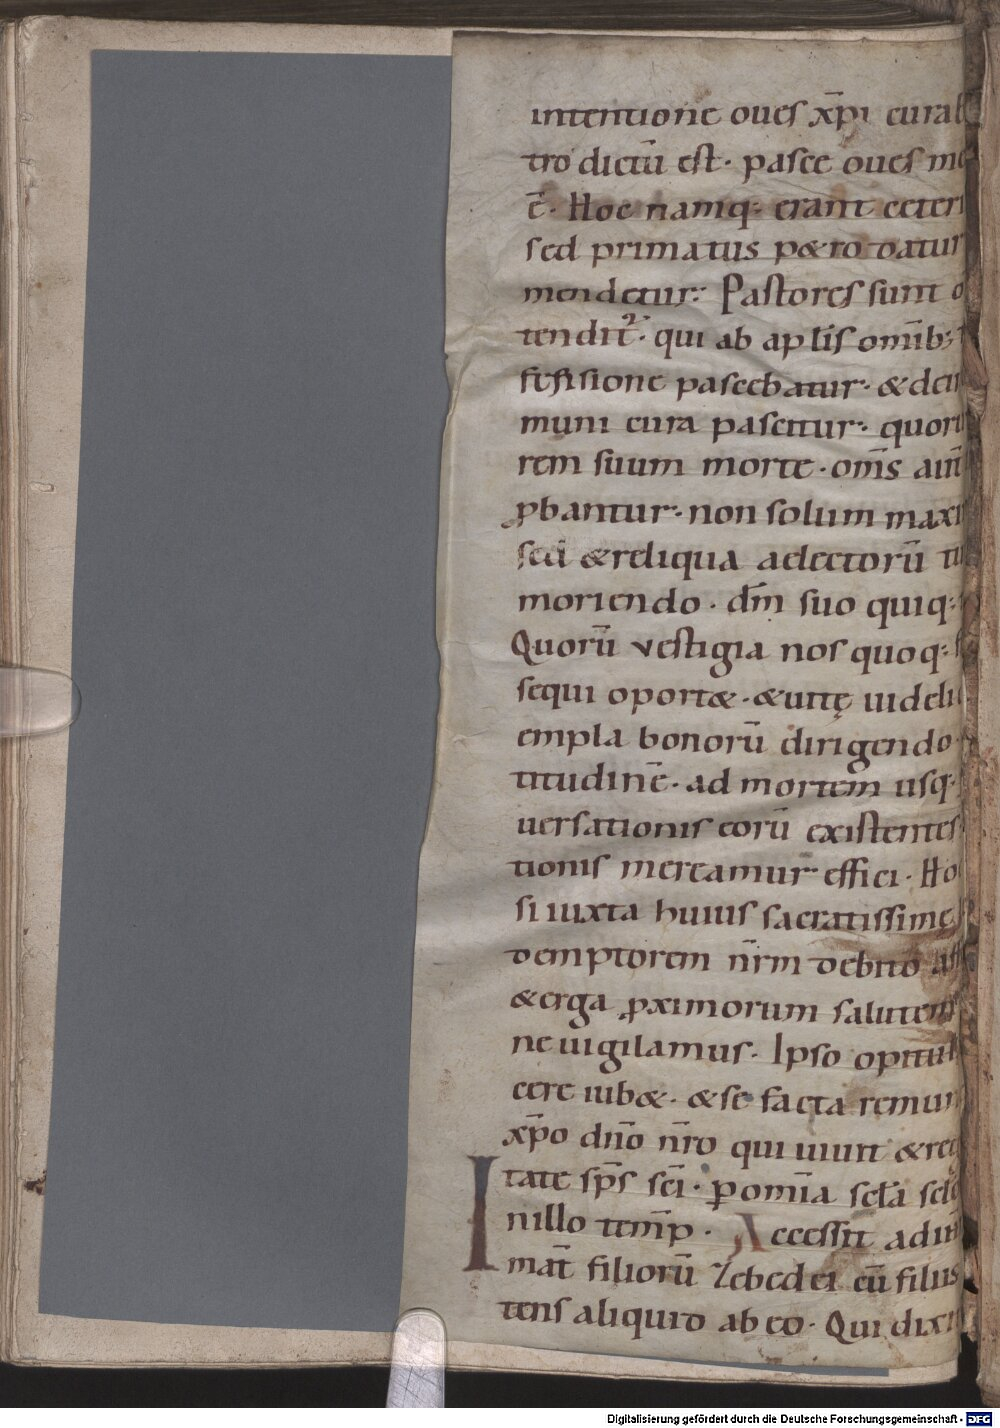 intentione oues xp̄i curat
tro dictū est· pasce oues me
ē· Hoc namq; erant ceteri
sed primatus p&ro datur
mendetur· Pastores sunt o
tendit᷑· qui ab aplīs omīb;
fessione pascebatur· & deu
muni cura pascitur· quoru
rem suum morte· om̄s aut̄
ꝓbantur· non solum maxi
sed & reliqua adectorū tu
moriendo· dn̄m suo quiq;
Quorū vestigia nos quoq; s
sequi oport&· & uitę uideli
empla bonorū dirigendo
titudinē· ad mortem usq;
uersationis eorū existentes
tionis mereamur effici· Ho
si iuxta huius sacratissime
demptorem nr̄m debito aff
& erga ꝓximorum salutem
ne uigilamus· Ipso opitul
cere iub&· & se facta remun
xp̄o dn̄o nr̄o qui uiuit & reg
tate sp̄s sc̄i· ꝑ omīa scl̄a sclo
I nillo temp̄· Accessit ad ih̄
mat̄ filiorū Zebedei cū filiis
tens aliquid ab eo· Qui dixi
Digitalisierung gefördert durch die Deutsche Forschungsgemeinschaft - DFG